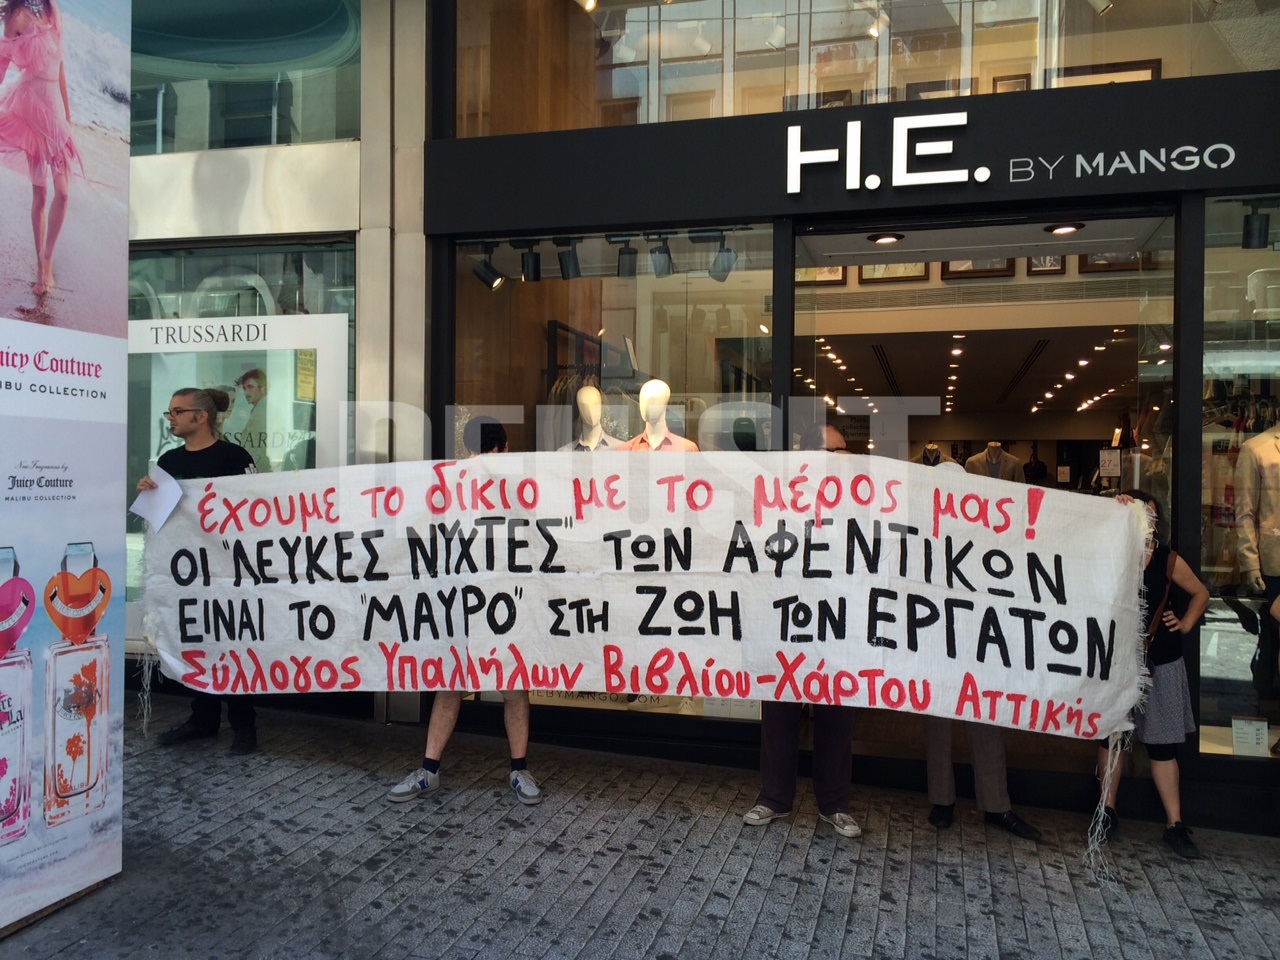 H.E. BY MANGO
TRUSSARDI
TRUSSARDI
Juicy Couture
MALIBU COLLECTION
New Fragrances by
Juicy Couture
MALIBU COLLECTION
NEWSIT
έχουμε το δίκιο με το μέρος μας!
ΟΙ "ΛΕΥΚΕΣ ΝΥΧΤΕΣ" ΤΩΝ ΑΦΕΝΤΙΚΩΝ
ΕΙΝΑΙ ΤΟ "ΜΑΥΡΟ" ΣΤΗ ΖΩΗ ΤΩΝ ΕΡΓΑΤΩΝ
Σύλλογος Υπαλλήλων Βιβλίου-Χάρτου Αττικής
HEBYMANGO.COM